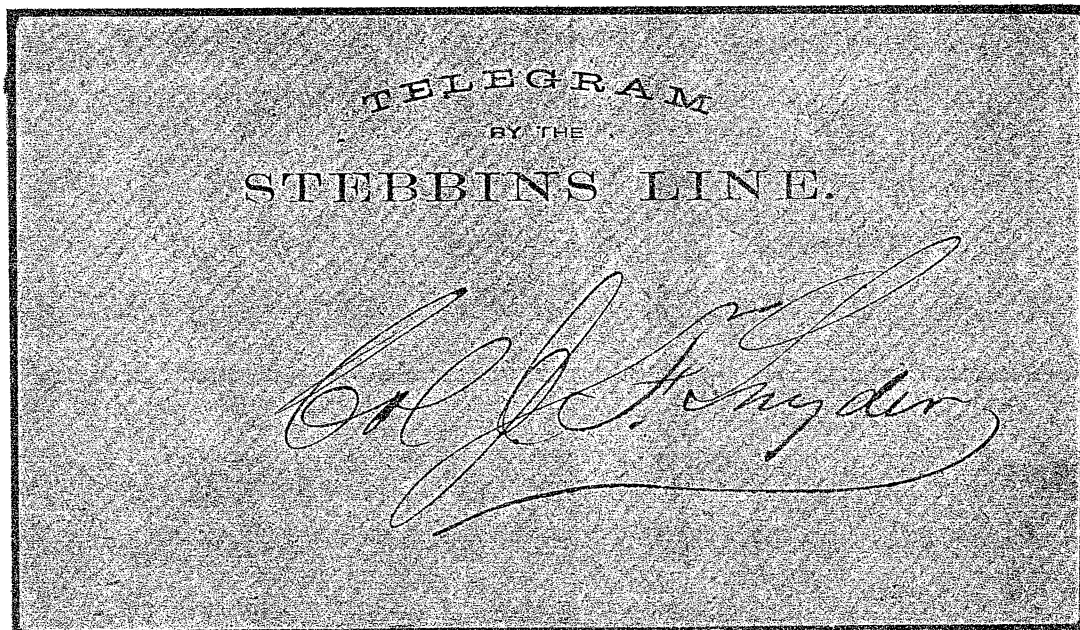 TELEGRAM
BY THE
STEBBINS LINE.
Col J. F. Snyder